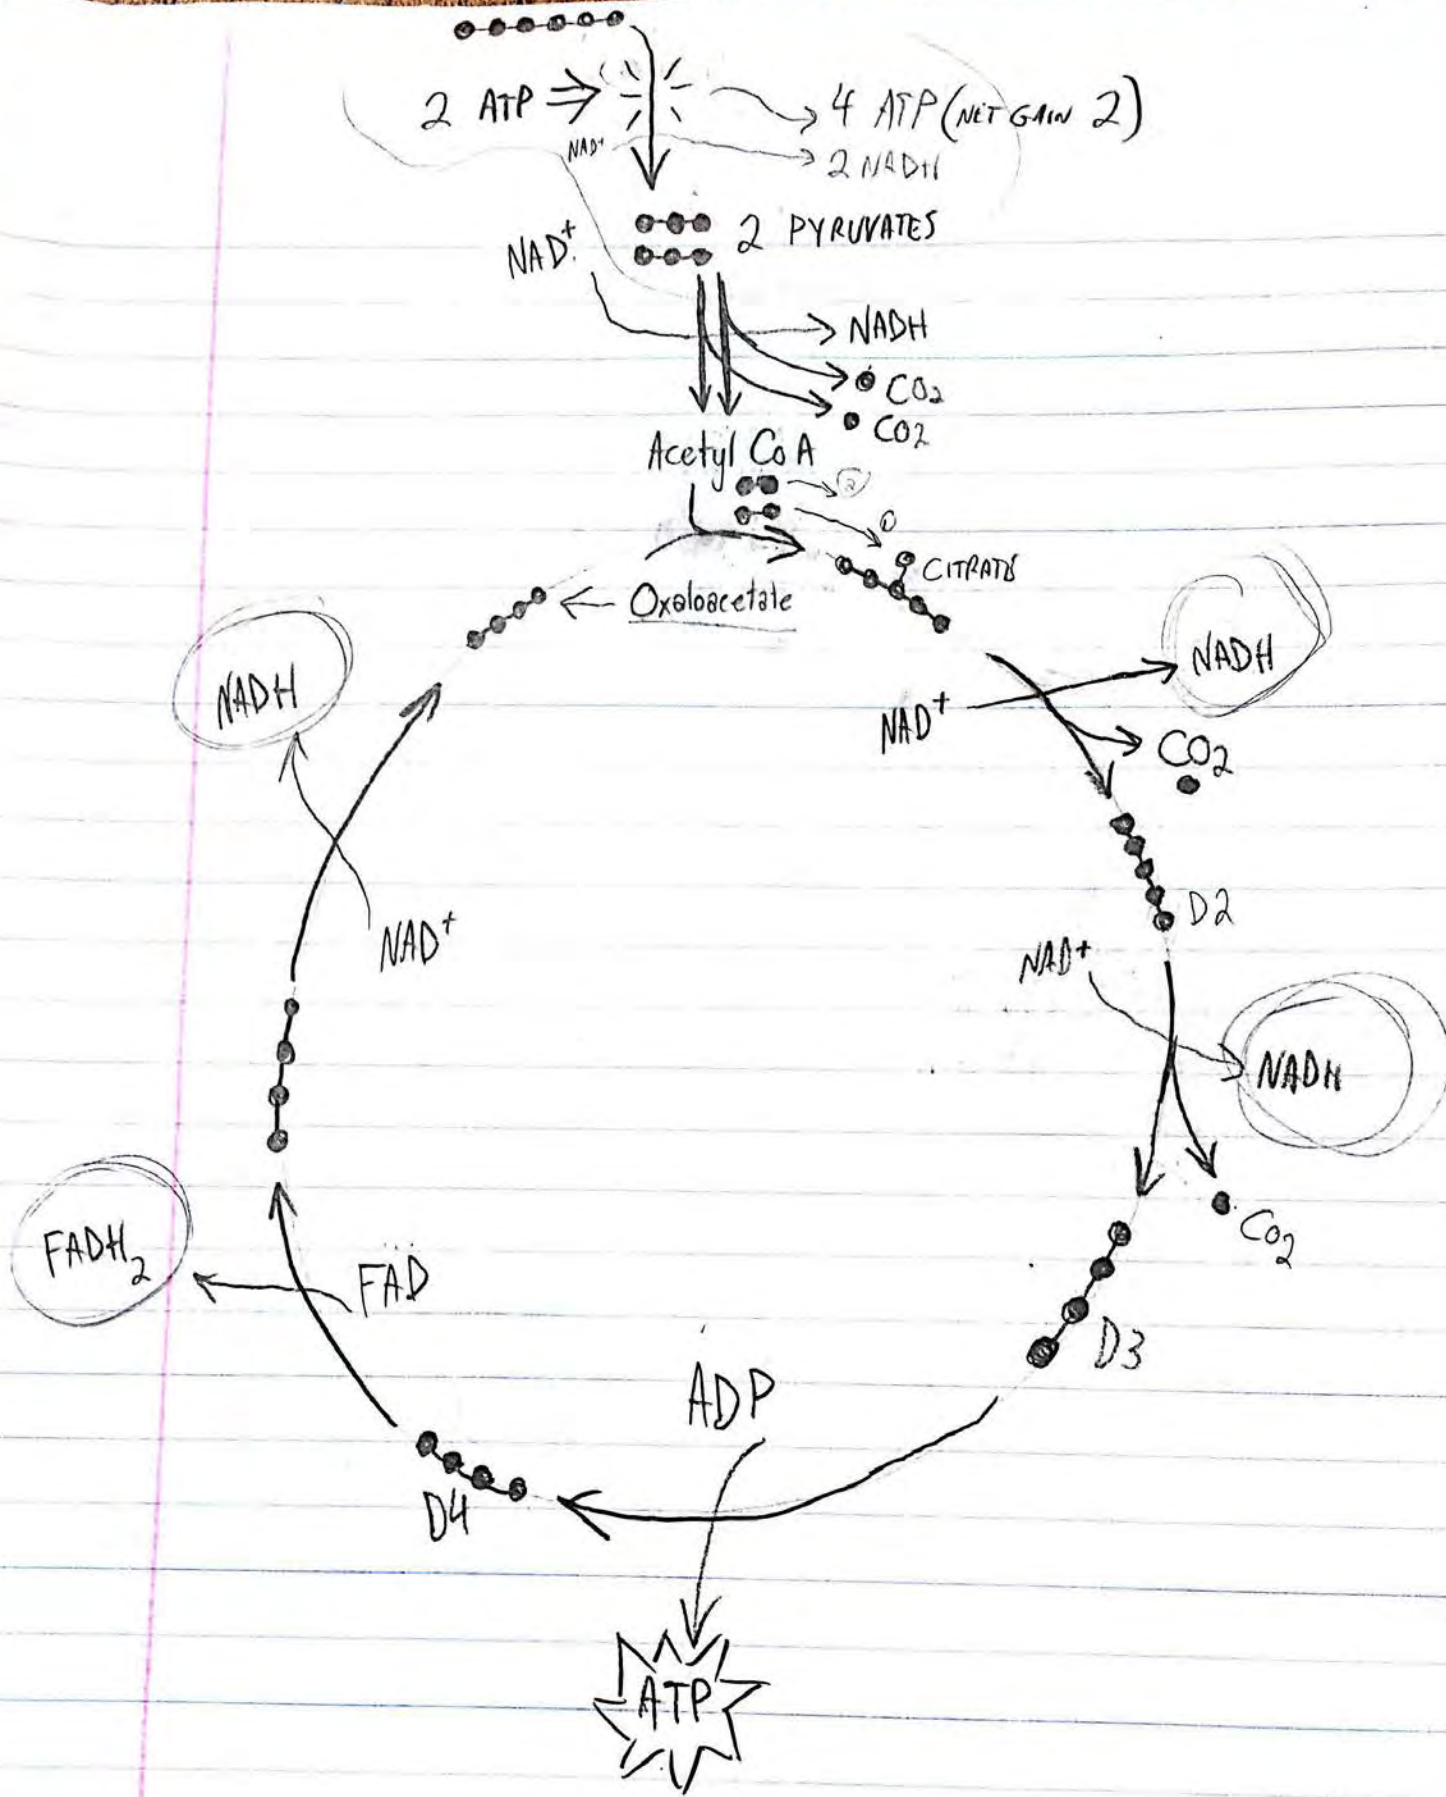 2 ATP
4 ATP (NET GAIN 2)
NAD+
2 NADH
2 PYRUVATES
NAD+
NADH
CO2
CO2
Acetyl CoA
2
1
CITRATE
Oxaloacetate
NADH
NADH
NAD+
CO2
D2
NAD+
NAD+
NADH
CO2
FADH2
FAD
D3
ADP
D4
ATP